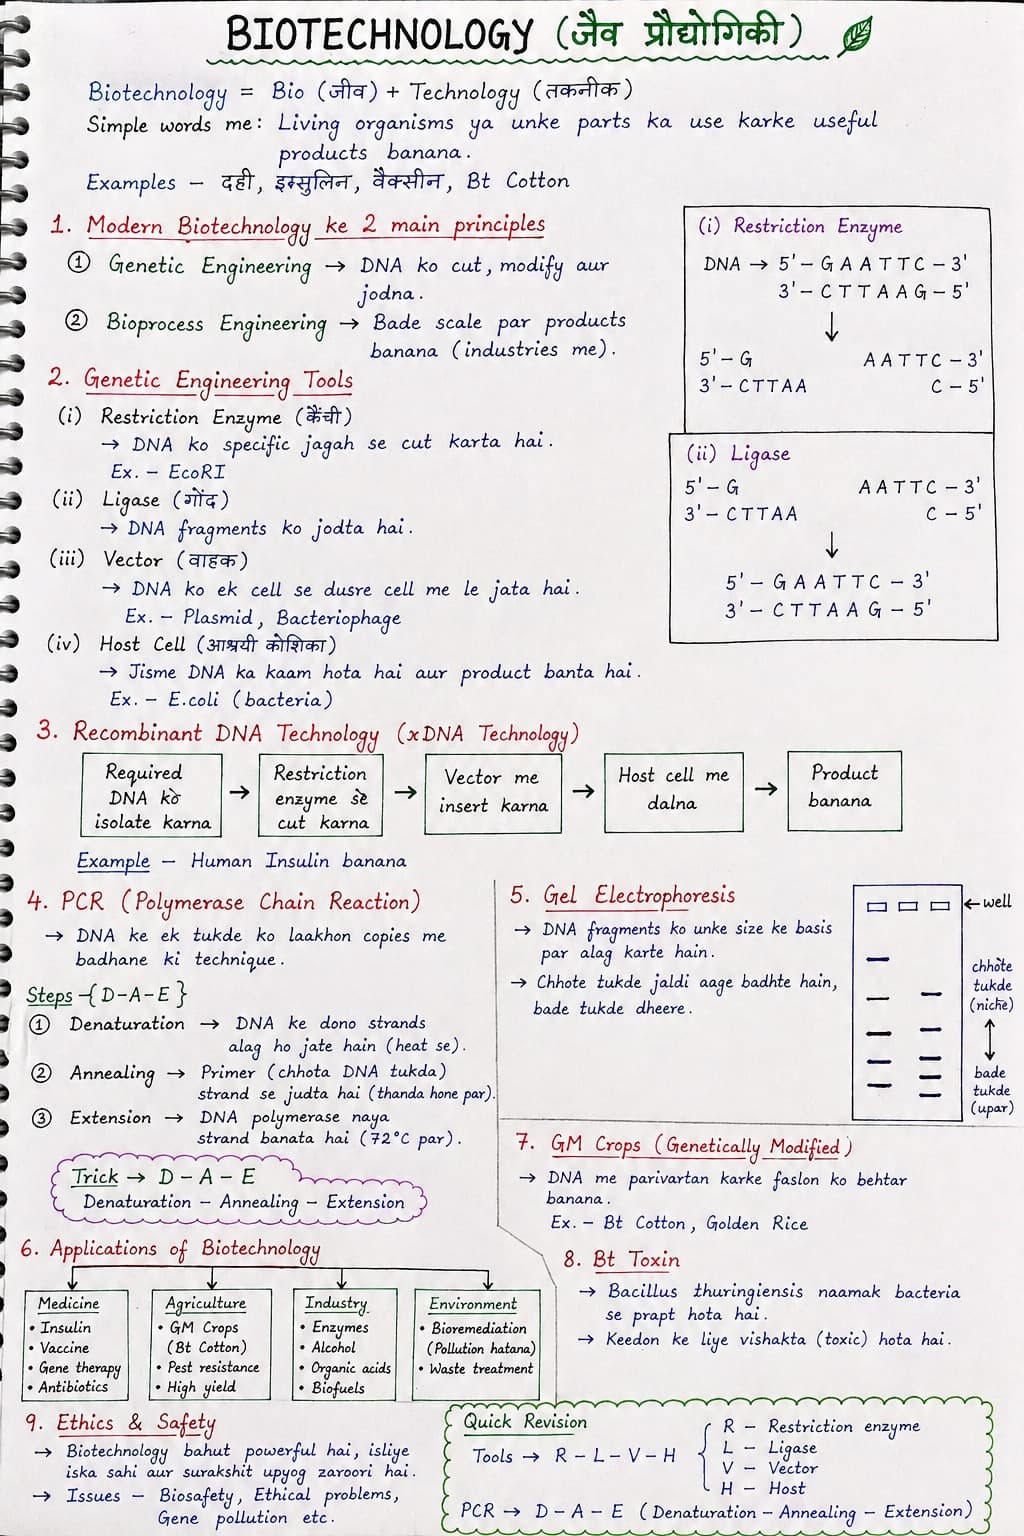 BIOTECHNOLOGY (जैव प्रौद्योगिकी)
Biotechnology = Bio (जीव) + Technology (तकनीक)
Simple words me: Living organisms ya unke parts ka use karke useful
products banana.
Examples – दही, इन्सुलिन, वैक्सीन, Bt Cotton
1. Modern Biotechnology ke 2 main principles
① Genetic Engineering → DNA ko cut, modify aur
jodna.
② Bioprocess Engineering → Bade scale par products
banana (industries me).
2. Genetic Engineering Tools
(i) Restriction Enzyme (कैंची)
→ DNA ko specific jagah se cut karta hai.
Ex. – EcoRI
(ii) Ligase (गोंद)
→ DNA fragments ko jodta hai.
(iii) Vector (वाहक)
→ DNA ko ek cell se dusre cell me le jata hai.
Ex. – Plasmid, Bacteriophage
(iv) Host Cell (आश्रयी कोशिका)
→ Jisme DNA ka kaam hota hai aur product banta hai.
Ex. – E.coli (bacteria)
(i) Restriction Enzyme
DNA → 5'– G A A T T C – 3'
3'– C T T A A G – 5'
↓
5'– G A A T T C – 3'
3'– C T T A A C – 5'
(ii) Ligase
5'– G A A T T C – 3'
3'– C T T A A C – 5'
↓
5'– G A A T T C – 3'
3'– C T T A A G – 5'
3. Recombinant DNA Technology (xDNA Technology)
Required
DNA ko
isolate karna
→
Restriction
enzyme se
cut karna
→
Vector me
insert karna
→
Host cell me
dalna
→
Product
banana
Example – Human Insulin banana
4. PCR (Polymerase Chain Reaction)
→ DNA ke ek tukde ko laakhon copies me
badhane ki technique.
Steps -{D-A-E}
① Denaturation → DNA ke dono strands
alag ho jate hain (heat se).
② Annealing → Primer (chhota DNA tukda)
strand se judta hai (thanda hone par).
③ Extension → DNA polymerase naya
strand banata hai (72°C par).
Trick → D – A – E
Denaturation – Annealing – Extension
5. Gel Electrophoresis
→ DNA fragments ko unke size ke basis
par alag karte hain.
→ Chhote tukde jaldi aage badhte hain,
bade tukde dheere.
← well
chhote
tukde
(niche)
↕
bade
tukde
(upar)
7. GM Crops (Genetically Modified)
→ DNA me parivartan karke faslon ko behtar
banana.
Ex. – Bt Cotton, Golden Rice
6. Applications of Biotechnology
Medicine
• Insulin
• Vaccine
• Gene therapy
• Antibiotics
Agriculture
• GM Crops
(Bt Cotton)
• Pest resistance
• High yield
Industry
• Enzymes
• Alcohol
• Organic acids
• Biofuels
Environment
• Bioremediation
(Pollution hatana)
• Waste treatment
8. Bt Toxin
→ Bacillus thuringiensis naamak bacteria
se prapt hota hai.
→ Keedon ke liye vishakta (toxic) hota hai.
9. Ethics & Safety
→ Biotechnology bahut powerful hai, isliye
iska sahi aur surakshit upyog zaroori hai.
→ Issues – Biosafety, Ethical problems,
Gene pollution etc.
Quick Revision
Tools → R – L – V – H
R – Restriction enzyme
L – Ligase
V – Vector
H – Host
PCR → D – A – E (Denaturation – Annealing – Extension)